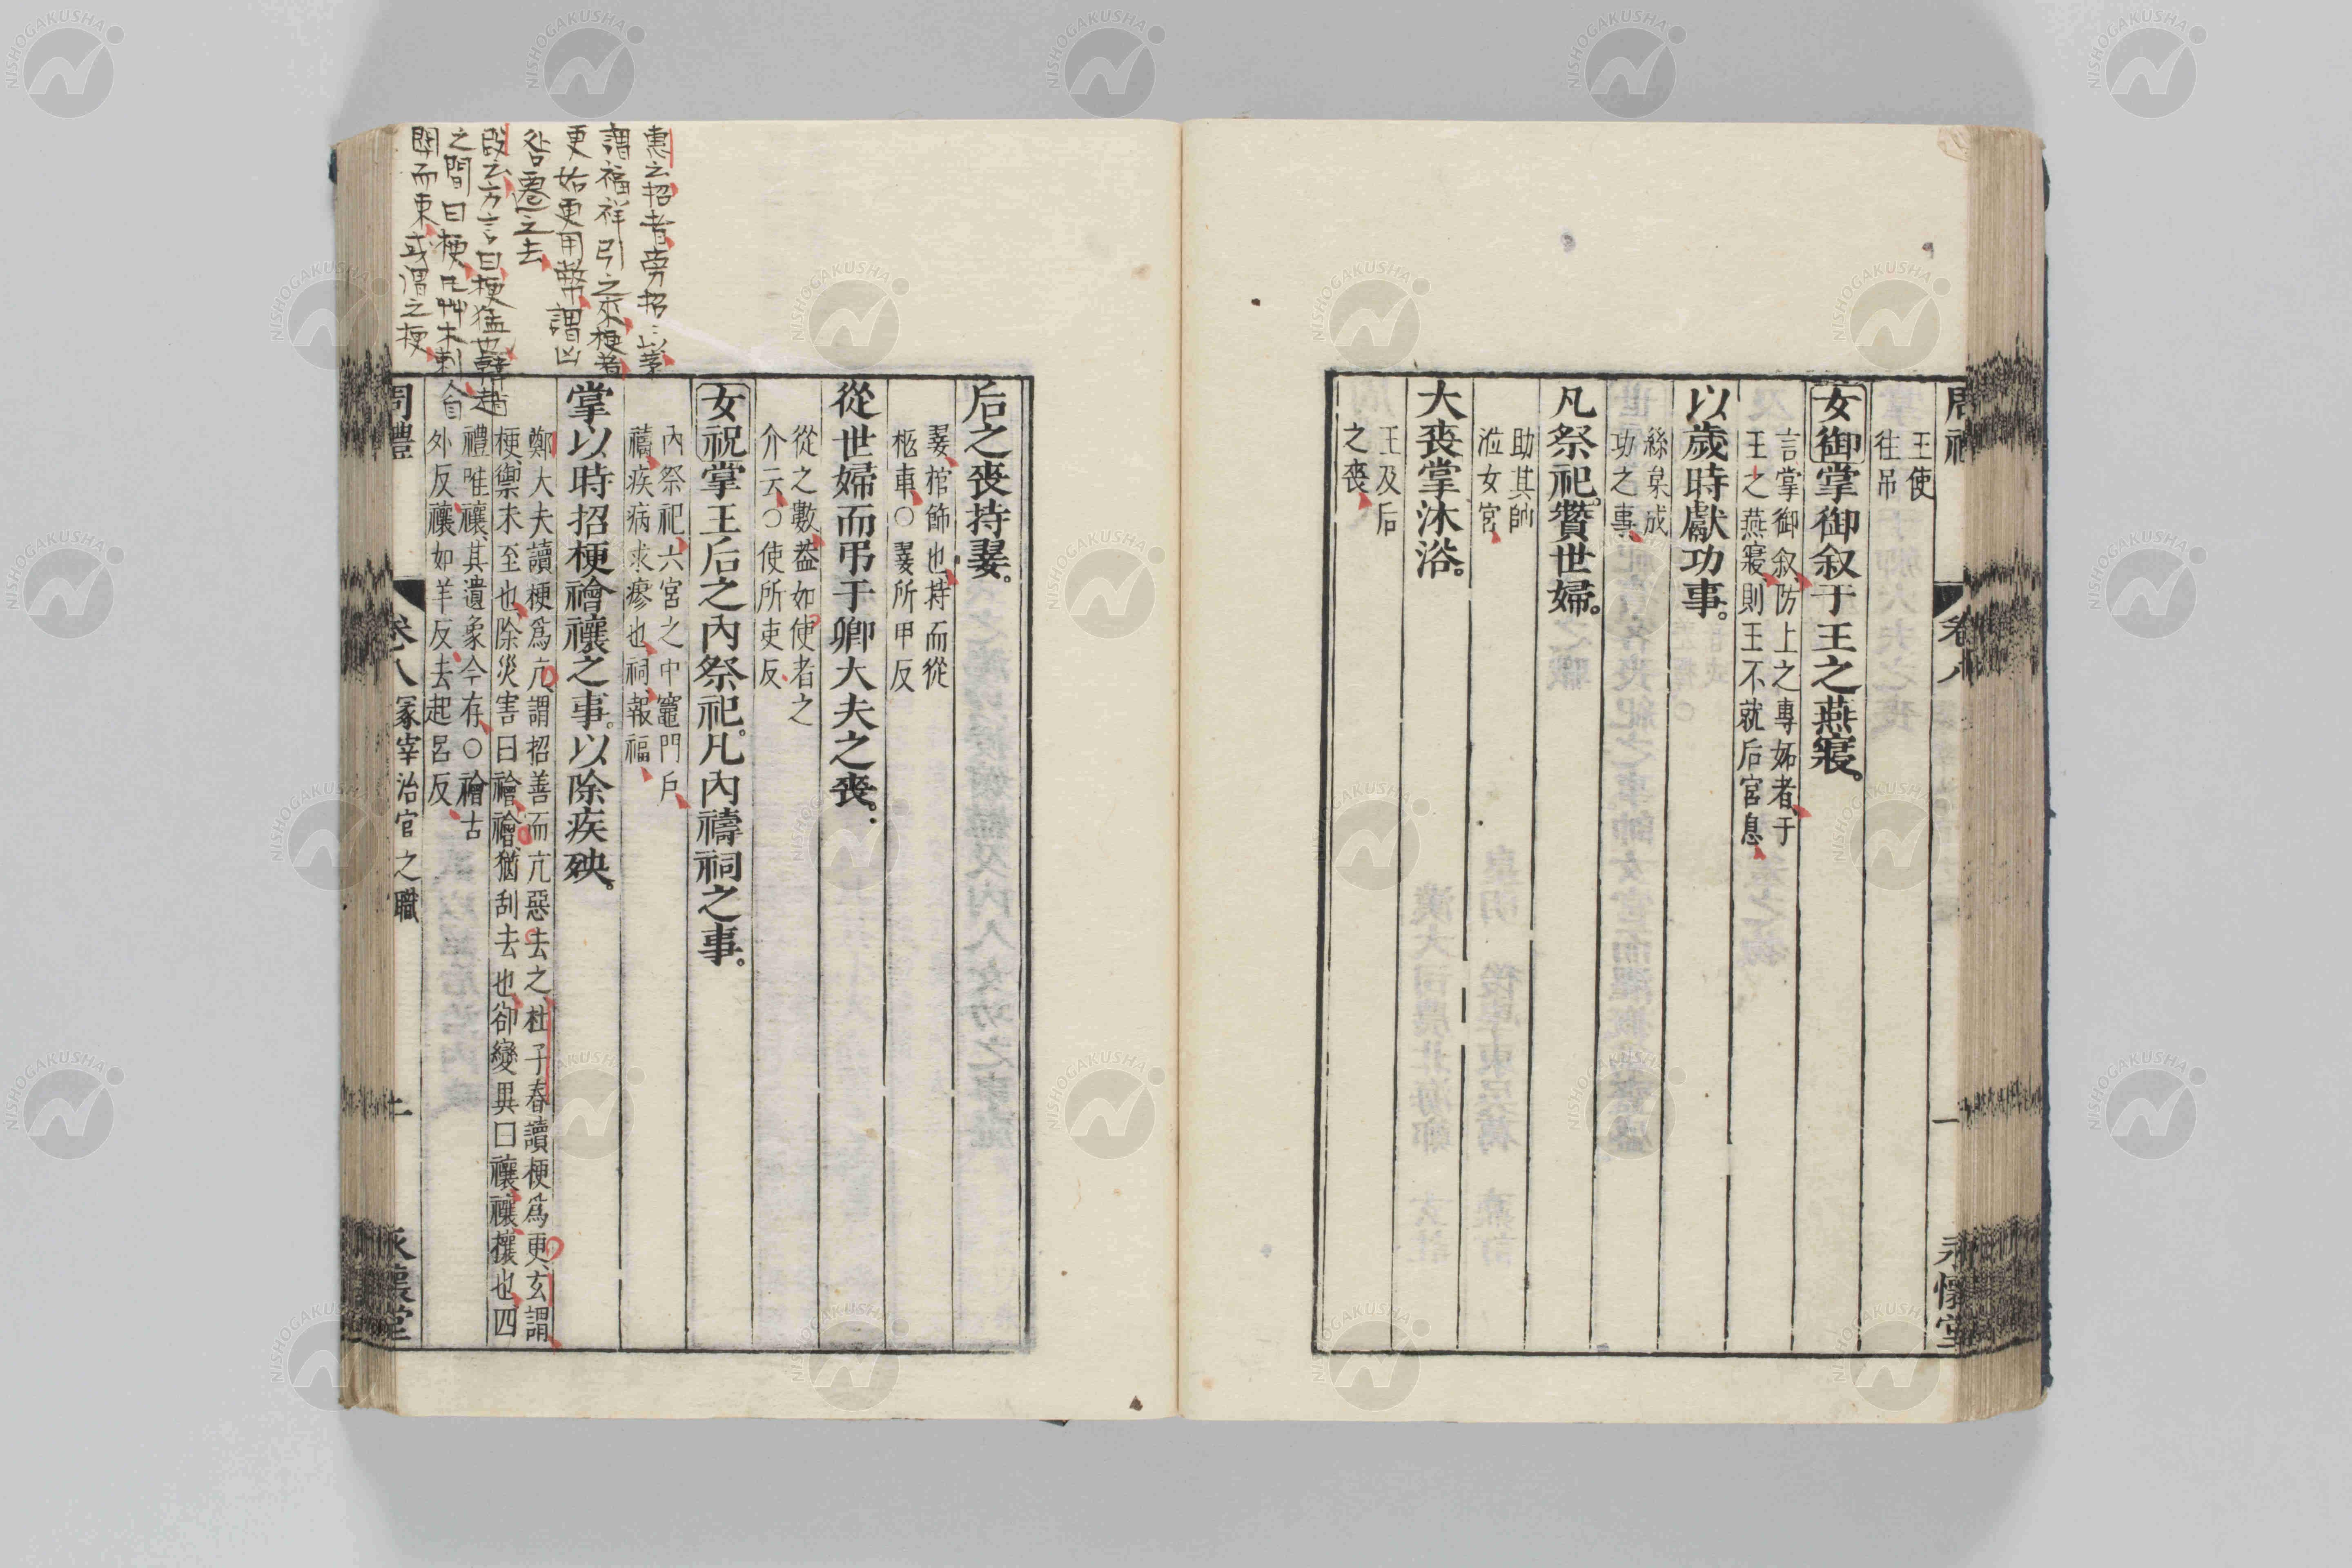 王使
往吊
女御掌御叙于王之燕寢。
言掌御叙防上之專妬者于
王之燕寢則王不就后宮息
以歲時獻功事。
絲枲成
功之事
凡祭祀。贊世婦。
助其帥
涖女宮
大喪掌沐浴。
王及后
之喪
卷八
一
永懷堂
后之喪持翣。
翣棺飾也持而從
柩車〇翣所甲反
從世婦而弔于卿大夫之喪。
從之數葢如使者之
介云〇使所吏反
女祝掌王后之內祭祀。凡內禱祠之事。
內祭祀六宮之中竈門戶
禱疾病求瘳也祠報福
掌以時招梗禬禳之事。以除疾殃。
鄭大夫讀梗爲亢謂招善而亢惡去之杜子春讀梗爲更玄謂
梗禦未至也除災害曰禬禬猶刮去也卻變異曰禳禳攘也四
禮唯禳其遺象今存〇禬古
外反禳如羊反去起呂反
周禮
卷八
冢宰治官之職
永懷堂
惠云招者旁招以茅
謂福祥引之來梗者
更始更用幣謂凶
咎遷之去
段云方言曰梗猛也韓趙
之間曰梗凡艸木刺人自
關而東或謂之梗